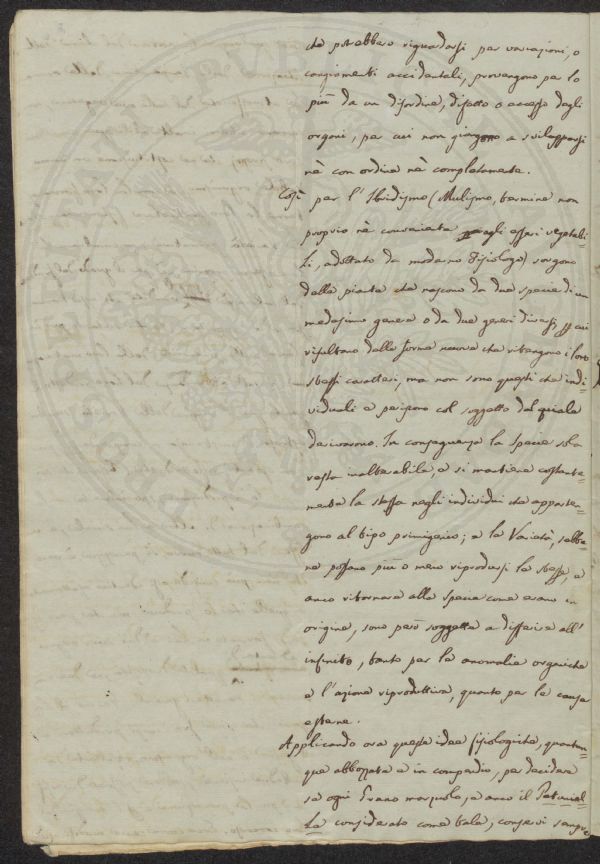 che potrebbero riguardarsi per variazioni, o
congiomenti accidentali, provengono per lo
più da un disordine, difetto o eccesso degli
organi, per cui non giungono a svilupparsi
nè con ordine nè completamente.
Così per l'Ibridismo (Mulismo, termine non
proprio nè conveniente agli esseri vegetabi=
li, adottato da moderno Fisiologo) sorgono
delle piante che nascono da due specie di un
medesimo genere o da due generi diversi, per cui
risultano delle forme nuove che ritengono i loro
stessi caratteri, ma non sono questi che indi=
viduali e periscono col soggetto dal quale
derivarono. In conseguenza la Specie sola
resta inalterabile, e si mantiene costante=
mente la stessa negli individui che apparten=
gono al tipo primigenio; e le Varietà, sebbe=
ne possano più o meno riprodursi le stesse, e
anco ritornare alla specie come erano in
origine, sono però soggette a differire all'
infinito, tanto per le anomalie organiche
e l'azione riproduttiva, quanto per le cause
esterne.
Applicando ora queste idee fisiologiche, quantun=
que abbozzate e in compendio, per decidere
se ogni Grano marzuolo, e anco il
considerato come tale, conservi sempre